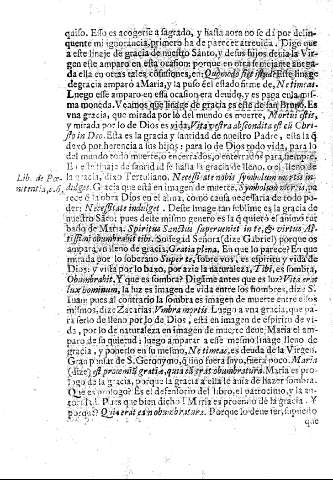 quiso. Esso es acogerse a sagrado, y hasta aora no se dà por delinquente
mi ignorancia, primero ha de parecer atrevida. Digo que
a este linaje de gracia de nuestro Santo, y de sus hijos devia la Virgen
este amparo en esta ocasion: porque en otra semejante anegada
ella en otras tales confusiones, en Quomodo fiet istud? Este linage
de gracia amparò a Maria, y la puso del estado firme de, Ne timeas.
Luego esse amparo en essa ocasion era deuda, y es paga en la misma
moneda. Veamos que linage de gracia es este de san Bruno. Es
vna gracia, que mirada por lo del mundo es muerte, Mortui estis,
y mirada por lo de Dios es vida, Vita vestra abscondita est cũ Christo
in Deo. Esta es la gracia y santidad de nuestro Padre, ella la q̃
dexò por herencia a sus hijos: para lo de Dios todo vida, para lo
del mundo todo muerte, o encerrados, o enterrados para siempre.
gracia, dixo Tertuliano. Necessitate nobis symbolum mortis indulget.
Lib. de Pœnitentia, c. 6.
Gracia que està en imagen de muerte. Symbolum mortis, parece
la obra Dios en el alma, como causa necessaria de todo poder:
Necessitate indulget. Deste image tan sublime es la gracia de
nuestro Santo: pues deste mismo genero es la q̃ quietò el animo turbado
de Maria. Spiritus Sanctus superueniet in te, & virtus Altissimi
obumbrabit tibi. Sossegad Señora (dize Gabriel) porque os
ampara vn lleno de gracia; Gratia plena. En que lo parece? En que
mirada por lo soberano Super te, sobre vos, es espiritu y vida de
Dios: y vista por lo baxo, por azia la naturaleza, Tibi, es sombra,
Obumbrabit. Y que es sombra? Digãme antes que es luz? Vita erat
lux hominum, la luz es imagen de vida entre los hombres, dize S.
Iuan: pues al contrario la sombra es imagen de muerte entre ellos
mismos, dize Zacarias, Vmbra mortis. Luego a vna gracia, que para
serlo de lleno por lo de Dios, està en imagen de espiritu de vida,
por lo de naturaleza en imagen de muerte deue Maria el amparo
de su quietud; luego amparar a esse mesmo linage lleno de
gracia, y ponerlo en su mesmo, Ne timeas, es deuda de la Virgen.
Gran pensar de S. Geronymo, si no fuera suyo, fuera poco. Maria
(dize) est proœmium gratiæ, quia ea erat obumbratura. Maria es prologo
de la gracia, porque la gracia a ella le auia de hazer sombra.
Que es prologo? Es el defensorio del libro, el patrocinio, y la autoridad.
Pues que bien dicho! Maria es proemio de la gracia. Y
porque? Quia erat ea obumbratura. Porque lo deue ser, supuesto
que